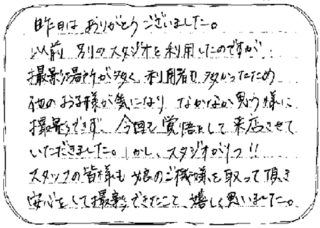 昨日は ありがとうございました。
以前 別のスタジオを利用したのですが
撮影場所が多く、利用者も多かったため
他のお子様が気になり なかなか思う様に
撮影できず、今回も覚悟して来店させて
いただきました。しかし、スタジオが1つ!!
スタッフの皆様も娘のご機嫌を取って頂き
安心をして撮影できたこと、嬉しく思いました。